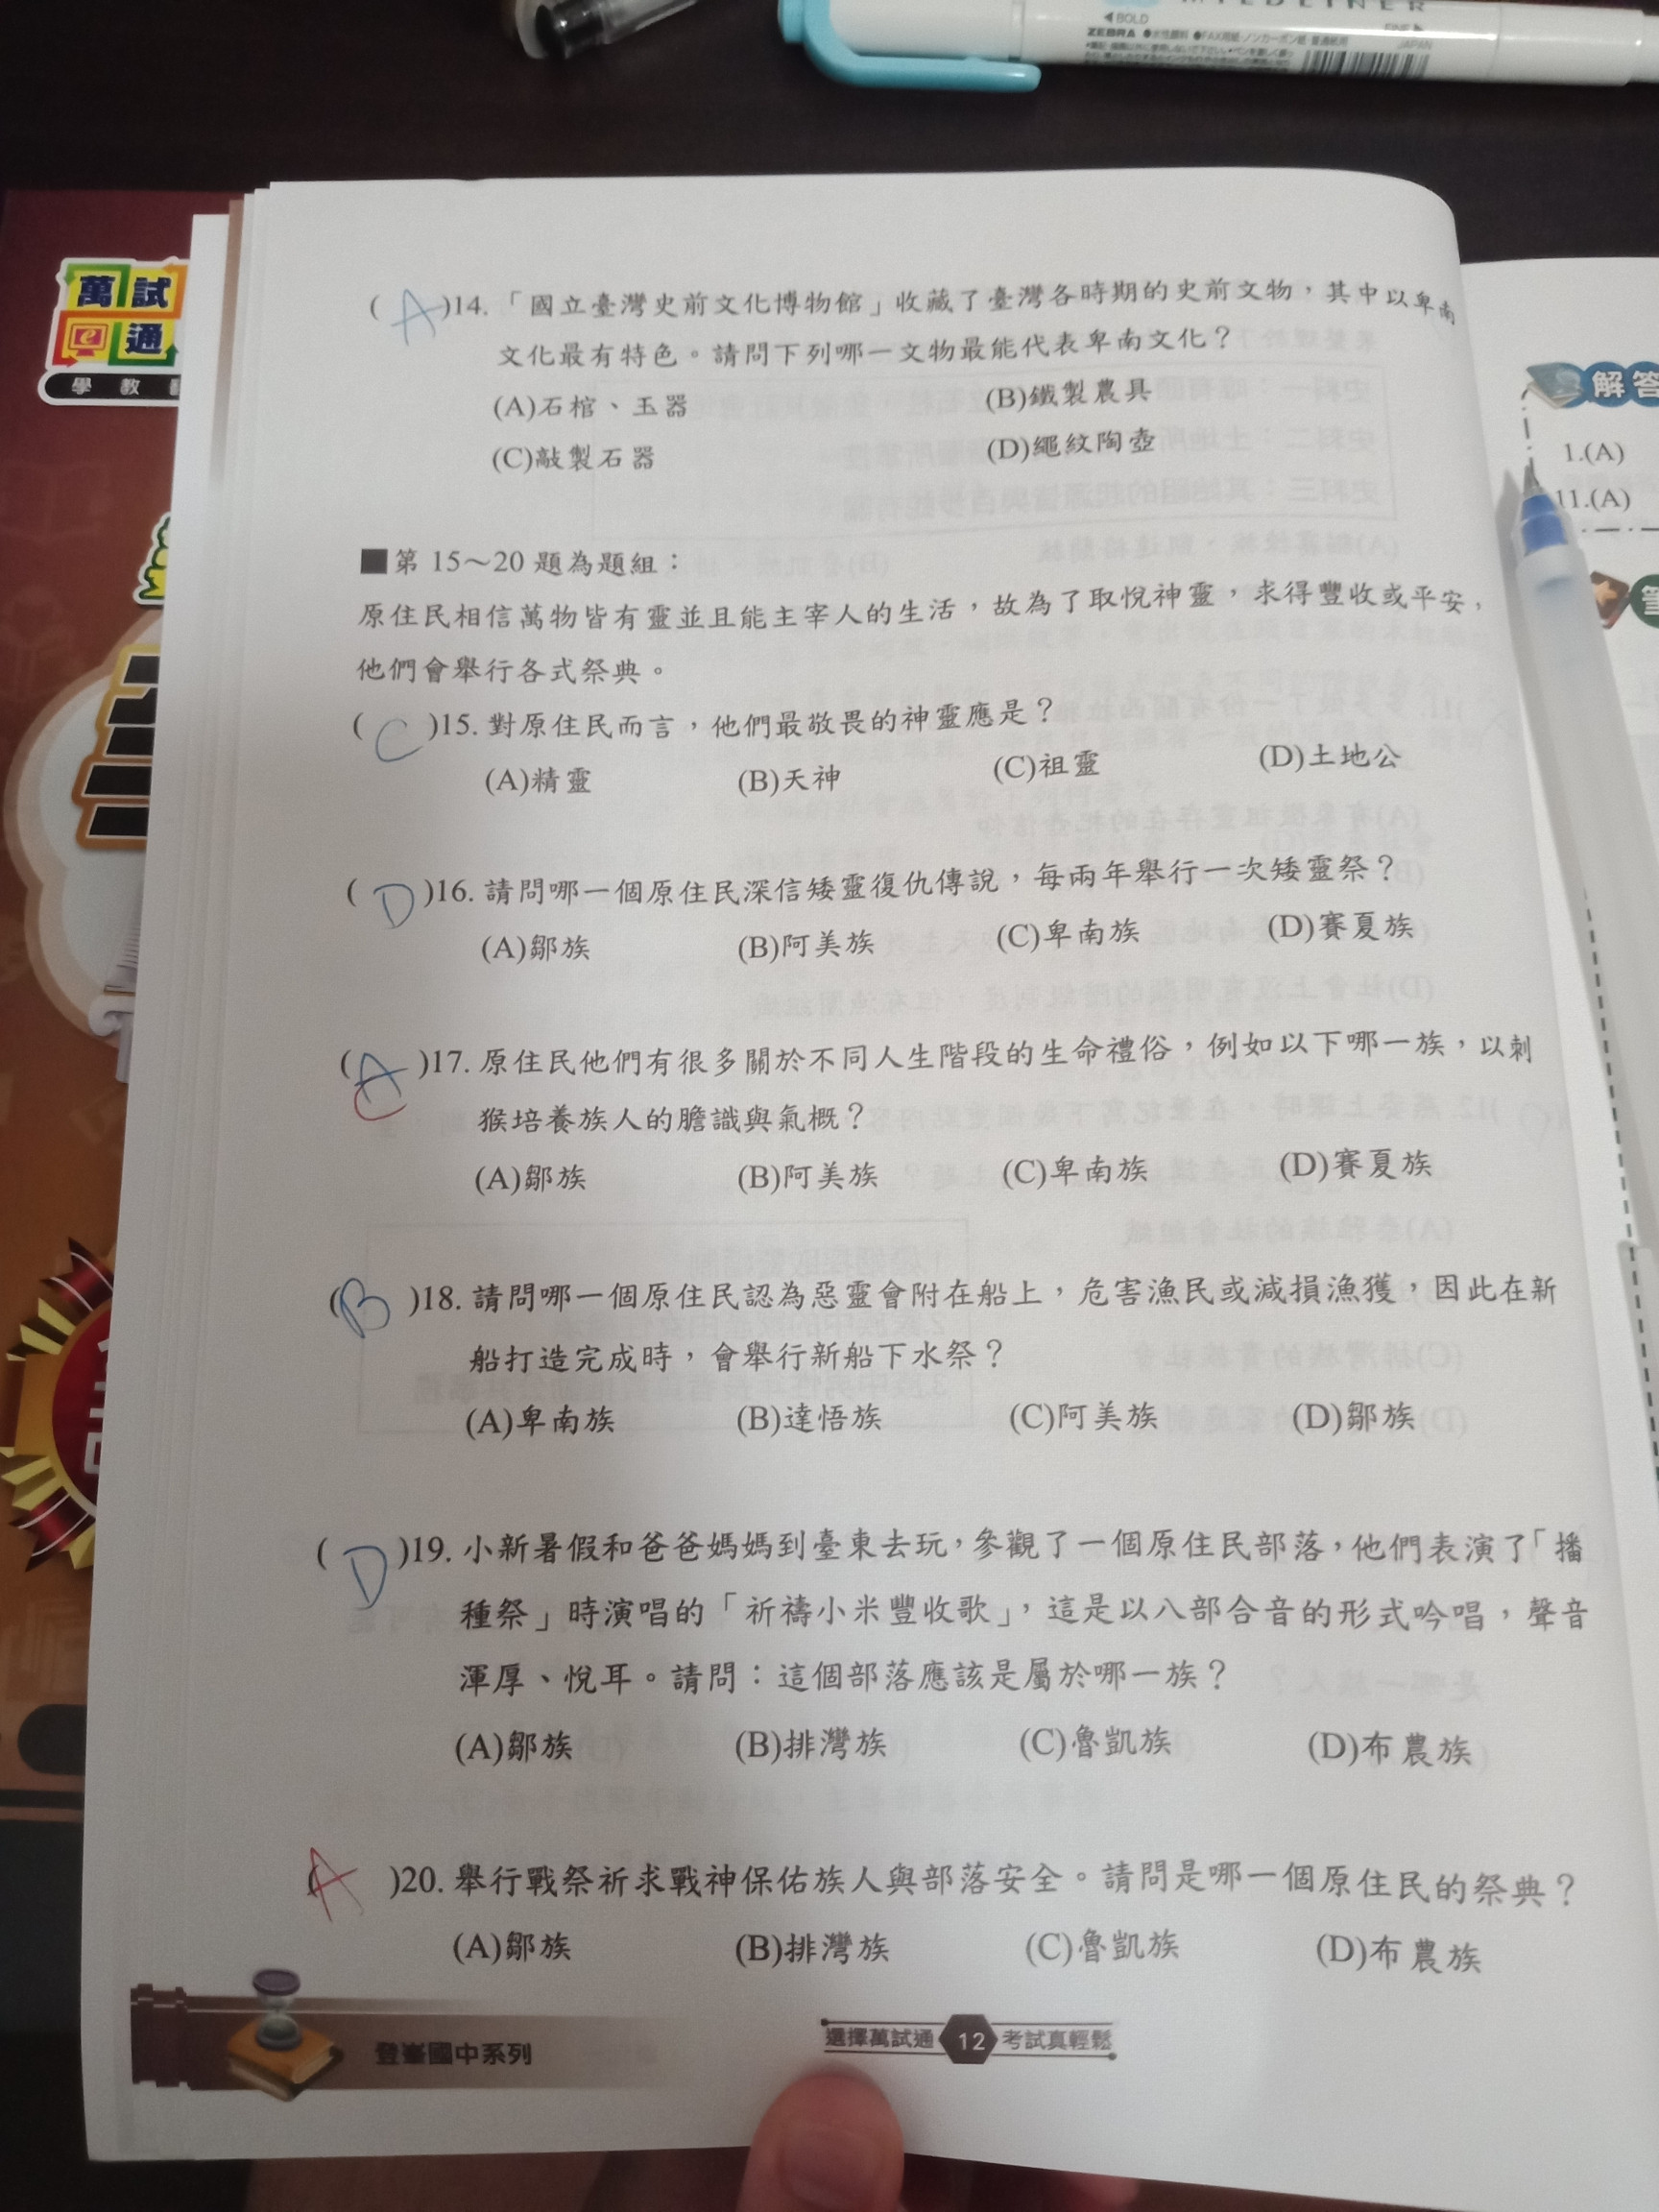 MILDLINER
◀BOLD
FINE▶
ZEBRA ●水性顔料 ●FAX用紙・ノンカーボン紙・普通紙用
JAPAN
萬試
e通
學 教
( A )14.「國立臺灣史前文化博物館」收藏了臺灣各時期的史前文物，其中以卑南
文化最有特色。請問下列哪一文物最能代表卑南文化？
(A)石棺、玉器 (B)鐵製農具
(C)敲製石器 (D)繩紋陶壺
■第 15～20 題為題組：
原住民相信萬物皆有靈並且能主宰人的生活，故為了取悅神靈，求得豐收或平安，
他們會舉行各式祭典。
( C )15. 對原住民而言，他們最敬畏的神靈應是？
(A)精靈 (B)天神 (C)祖靈 (D)土地公
( D )16. 請問哪一個原住民深信矮靈復仇傳說，每兩年舉行一次矮靈祭？
(A)鄒族 (B)阿美族 (C)卑南族 (D)賽夏族
( A C )17. 原住民他們有很多關於不同人生階段的生命禮俗，例如以下哪一族，以刺
猴培養族人的膽識與氣概？
(A)鄒族 (B)阿美族 (C)卑南族 (D)賽夏族
( B )18. 請問哪一個原住民認為惡靈會附在船上，危害漁民或減損漁獲，因此在新
船打造完成時，會舉行新船下水祭？
(A)卑南族 (B)達悟族 (C)阿美族 (D)鄒族
( D )19. 小新暑假和爸爸媽媽到臺東去玩，參觀了一個原住民部落，他們表演了「播
種祭」時演唱的「祈禱小米豐收歌」，這是以八部合音的形式吟唱，聲音
渾厚、悅耳。請問：這個部落應該是屬於哪一族？
(A)鄒族 (B)排灣族 (C)魯凱族 (D)布農族
( A )20. 舉行戰祭祈求戰神保佑族人與部落安全。請問是哪一個原住民的祭典？
(A)鄒族 (B)排灣族 (C)魯凱族 (D)布農族
登峯國中系列
選擇萬試通 12 考試真輕鬆
解答
1.(A)
11.(A)